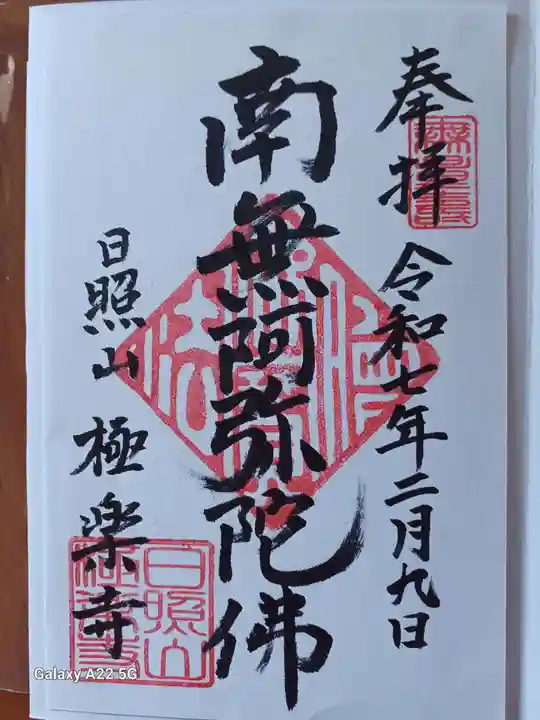 奉拝
令和七年二月九日
南無阿弥陀佛
日照山
極楽寺
日照山
極楽寺
Galaxy A22 5G